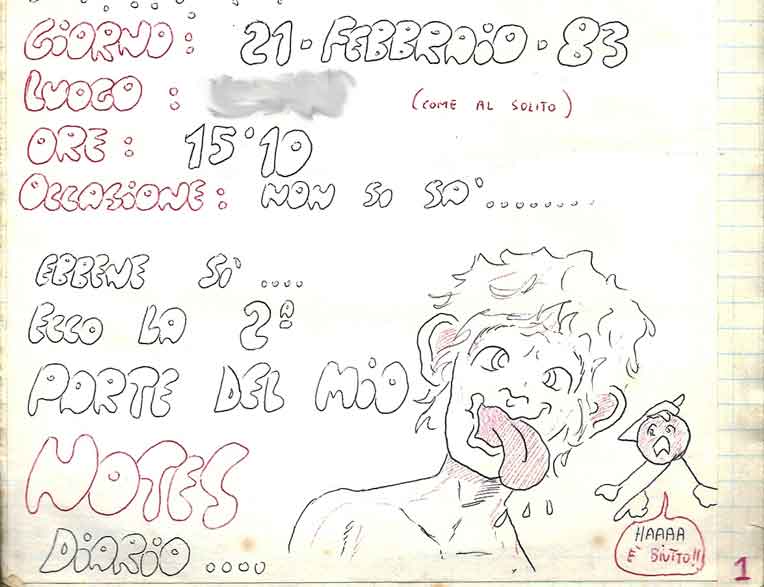 GIORNO: 21·FEBBRAIO·83
LUOGO : (COME AL SOLITO)
ORE: 15°10
OCCASIONE: NON SI SA'........
EBBENE SI'....
ECCO LA 2ª
PARTE DEL MIO
NOTES
DIARIO ....
HAAAA
È BIUTTO!!
1